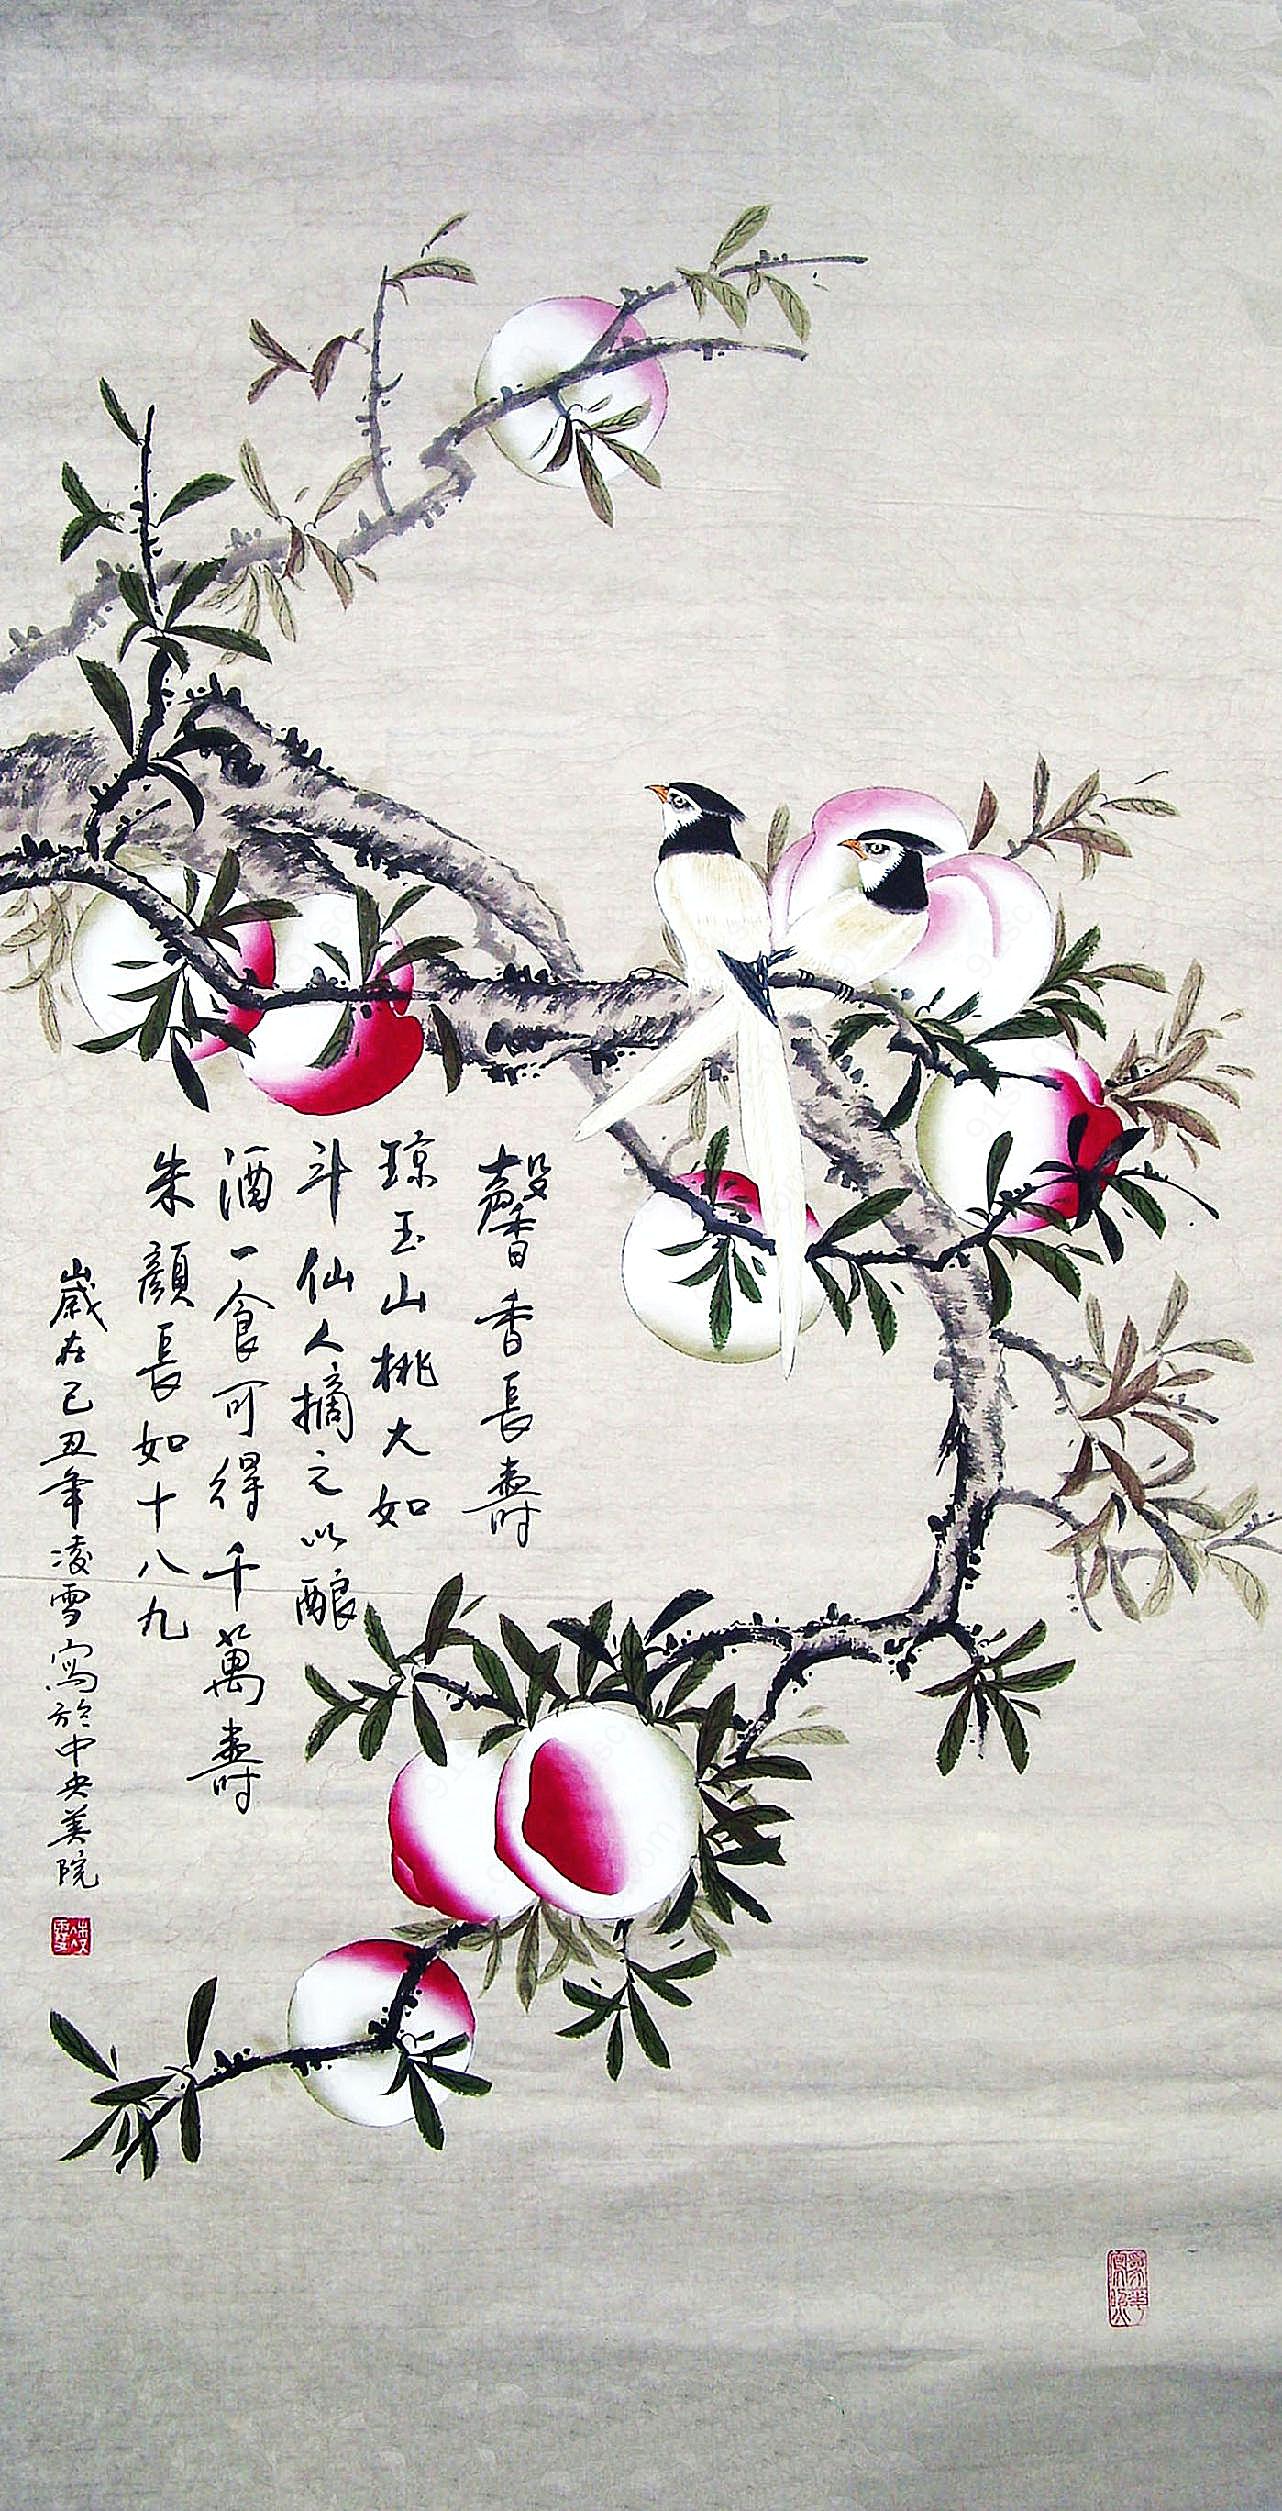 馨香長壽
琼玉山桃大如
斗仙人摘之以酿
酒一食可得千萬壽
朱顔長如十八九
歲在己丑年凌雪寫於中央美院